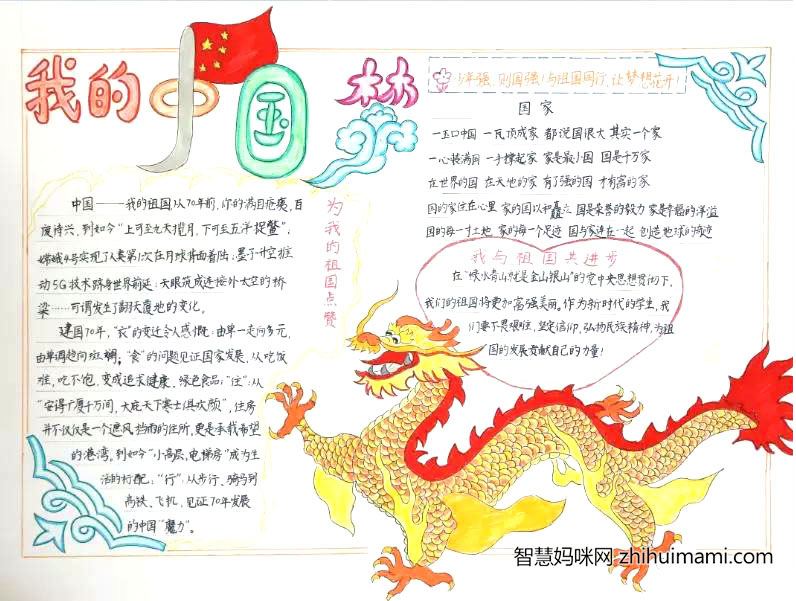 我的中国梦
少年强,则国强!与祖国同行,让梦想花开!
国家
一玉口中国 一瓦顶成家 都说国很大 其实一个家
一心装满国 一手撑起家 家是最小国 国是千万家
在世界的国 在天地的家 有了强的国 才有富的家
国的家住在心里 家的国以和矗立 国是荣誉的毅力 家是幸福的洋溢
国的每一寸土地 家的每一个足迹 国与家连在一起 创造地球的奇迹
为我的祖国点赞
中国——我的祖国从70年前,你的满目疮痍,百
废待兴,到如今"上可至九天揽月,下可至五洋捉鳖";
嫦娥4号实现了人类第1次在月球背面着陆;墨子升空推
动5G技术跻身世界前延;天眼筑成连接外太空的桥
梁……可谓发生了翻天覆地的变化。
建国70年,"衣"的变迁令人感慨:由单一走向多元,
由单调趋向斑斓,"食"的问题见证国家发展,从吃饭
难,吃不饱,变成追求健康、绿色食品;"住":从
"安得广厦千万间,大庇天下寒士俱欢颜",住房
并不仅仅是一个遮风挡雨的住所,更是承载希望
的港湾,到如今"小高层,电梯房"成为生
活的标配;"行":从步行、骑马到
高铁、飞机,见证70年发展
的中国"魔力"。
我与祖国共进步
在"绿水青山就是金山银山"的党中央思想贯彻下,
我们的祖国将更加富强美丽。作为新时代的学生,我
们要不畏艰难,坚定信仰,弘扬民族精神,为祖
国的发展贡献自己的力量!
智慧妈咪网 zhihuimami.com